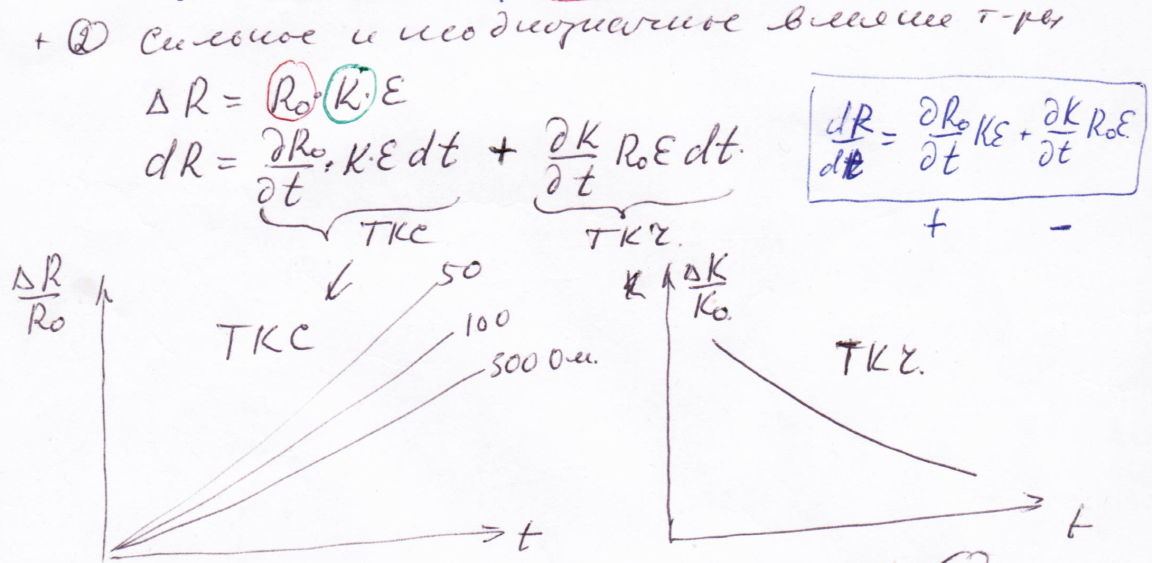 + ② Сильное и неоднозначное влияние т-ры
ΔR = R₀·K·ε
dR = ∂R₀/∂t · K·ε dt + ∂K/∂t R₀ε dt.
dR/dt = ∂R₀/∂t Kε + ∂K/∂t R₀ε
+ -
ТКС ТКЧ.
ΔR/R₀
ТКС
50
100
500 Ом.
t
ΔK/K₀.
ТКЧ.
t